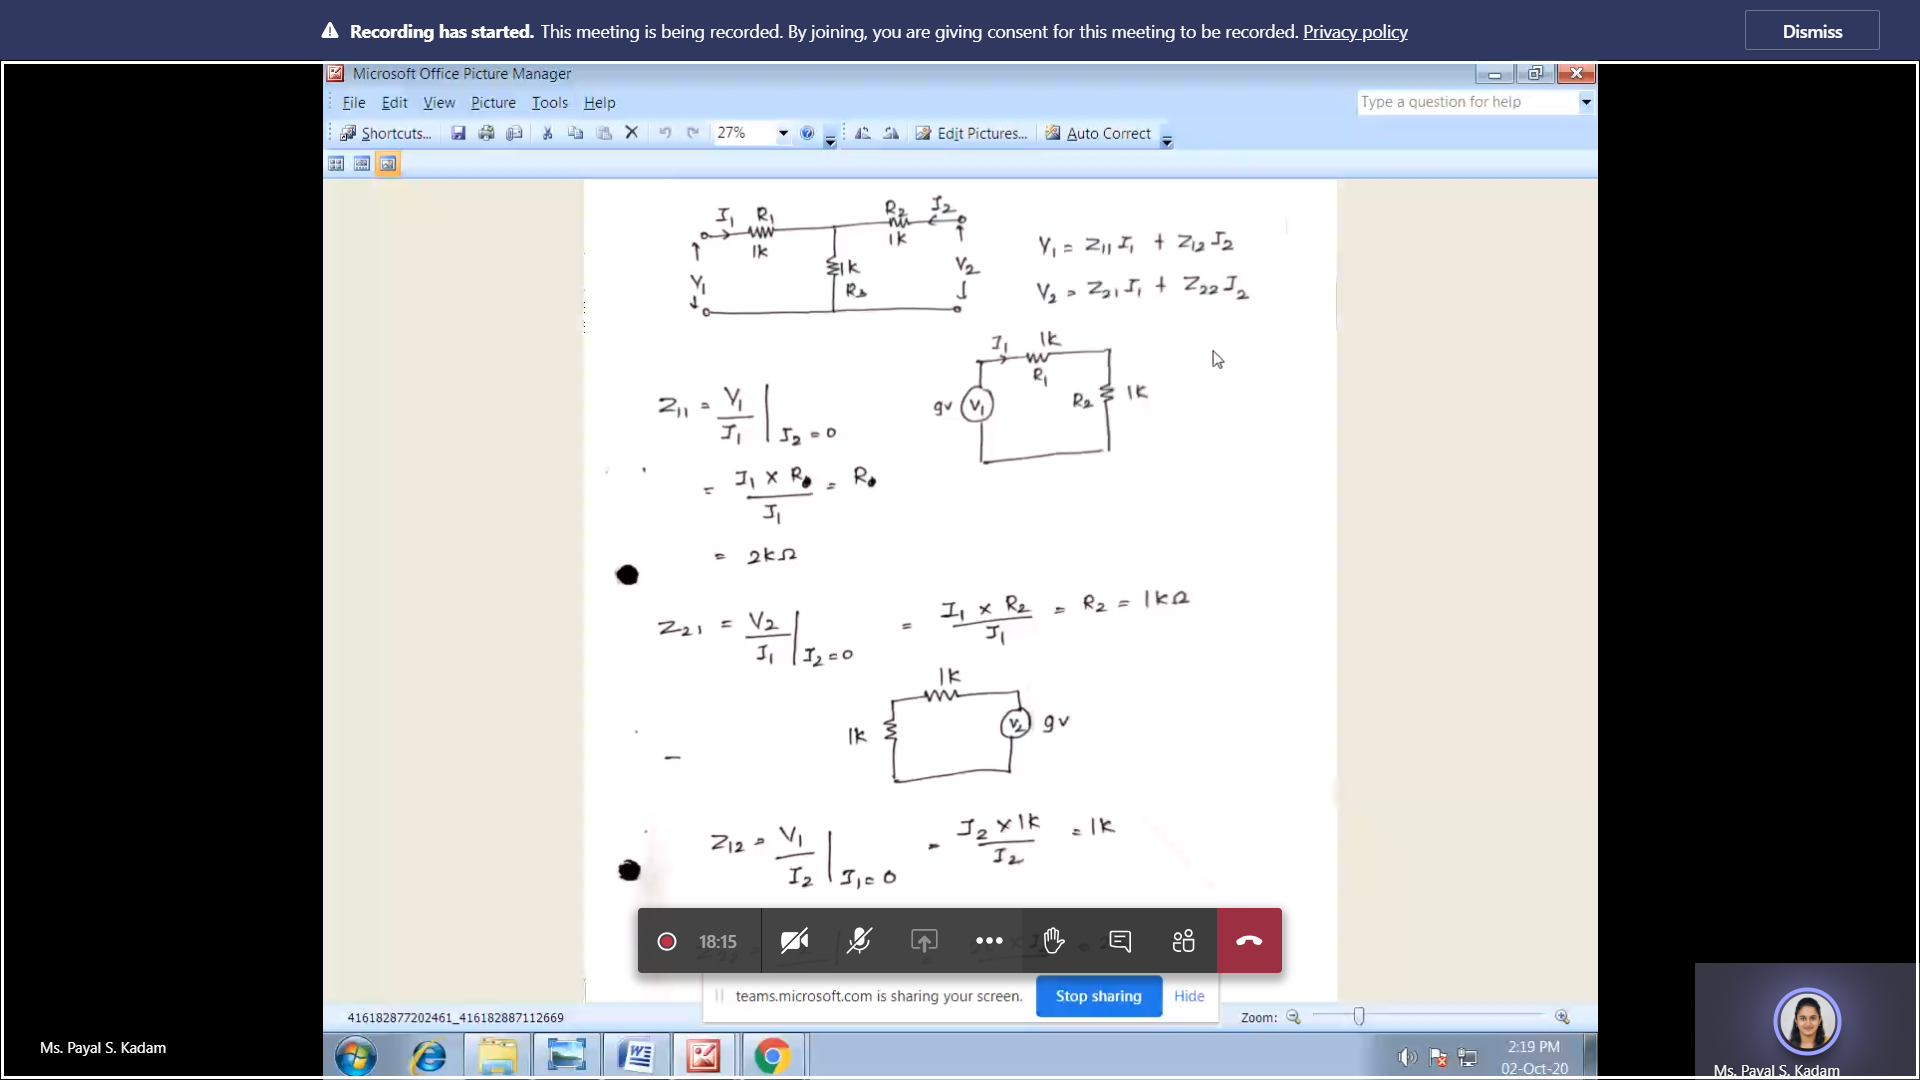 Recording has started. This meeting is being recorded. By joining, you are giving consent for this meeting to be recorded. Privacy policy
Dismiss
Microsoft Office Picture Manager
File Edit View Picture Tools Help
Type a question for help
Shortcuts... 27% Edit Pictures... Auto Correct
I1 R1 R2 I2
1K 1K
V1 1K R3 V2
V1 = Z11 I1 + Z12 I2
V2 = Z21 I1 + Z22 I2
I1 1K
R1
9V V1 R2 1K
Z11 = V1 / I1 | I2 = 0
= I1 × R / I1 = R
= 2KΩ
Z21 = V2 / I1 | I2 = 0 = I1 × R2 / I1 = R2 = 1KΩ
1K
1K V2 9V
Z12 = V1 / I2 | I1 = 0 = I2 × 1K / I2 = 1K
18:15
teams.microsoft.com is sharing your screen. Stop sharing Hide
416182877202461_416182887112669
Zoom:
Ms. Payal S. Kadam
2:19 PM
02-Oct-20
Ms. Payal S. Kadam